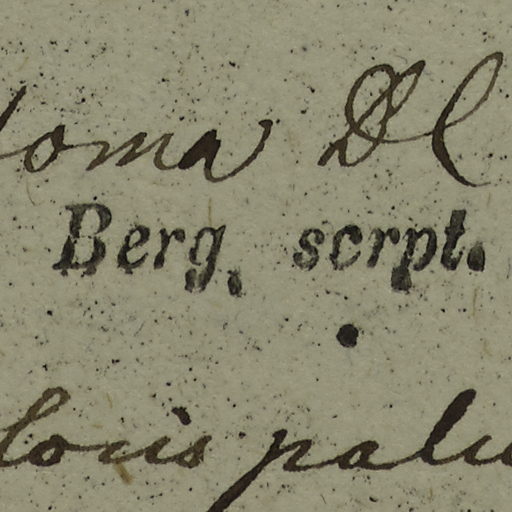 oma Dl
Berg, scrpt.
locis palu